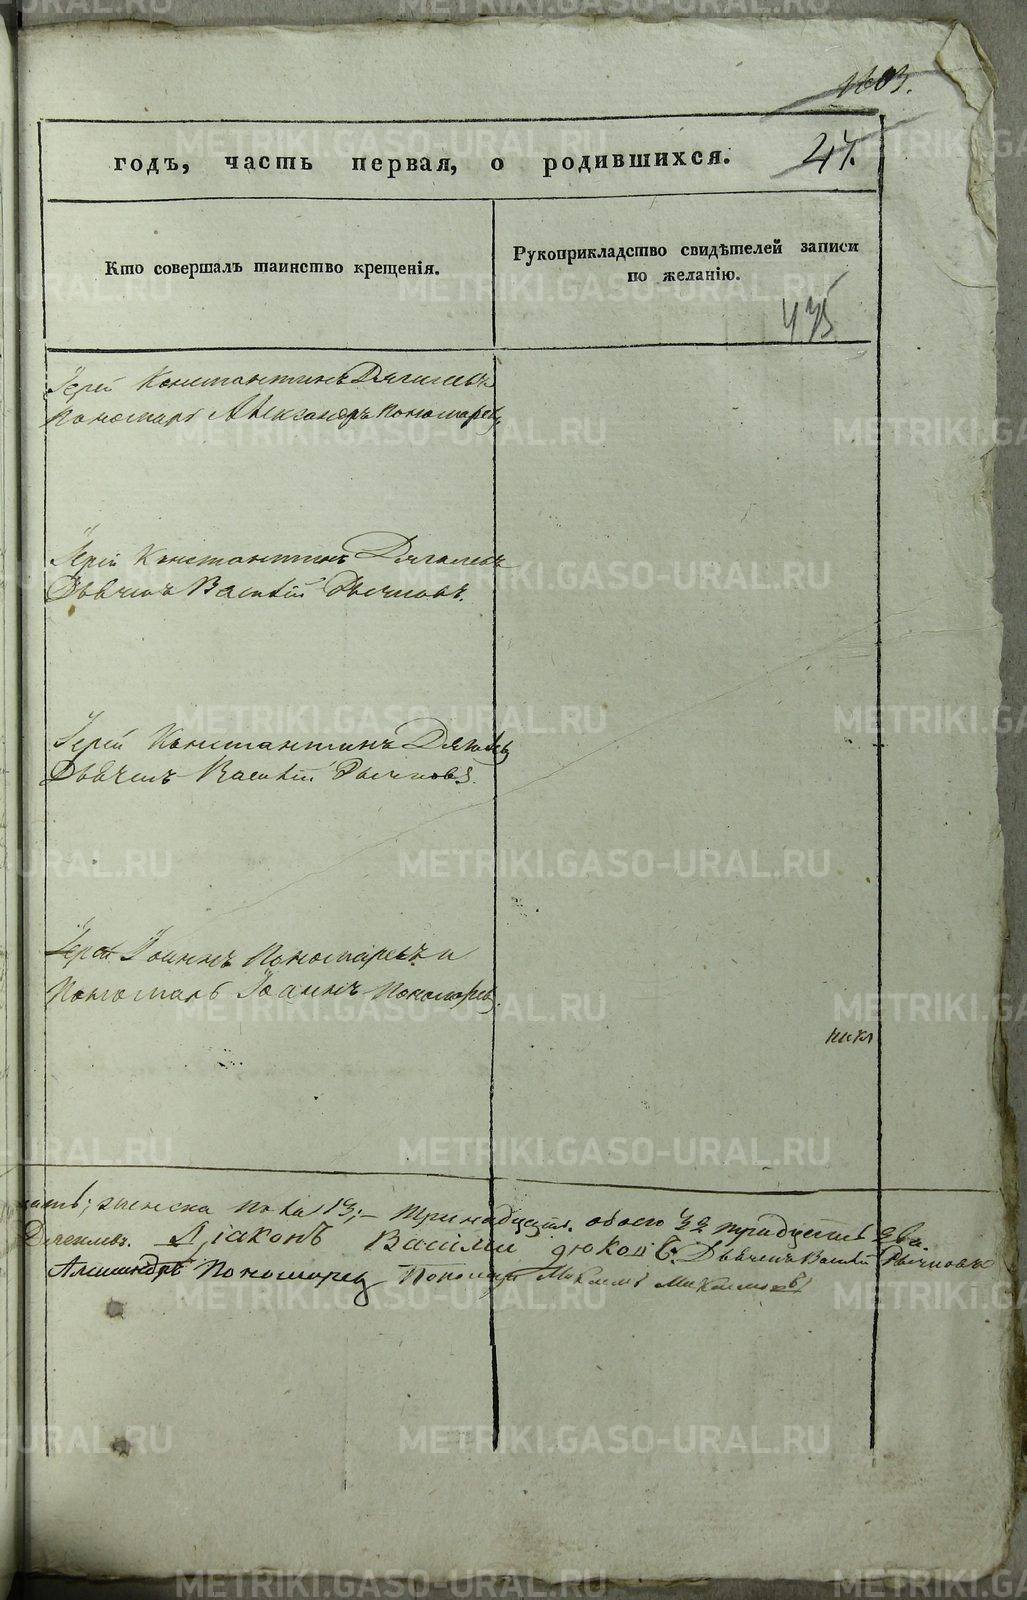 1603.
годъ, часть первая, о родившихся. 47.
Кто совершалъ таинство крещенія.
Рукоприкладство свидѣтелей записи
по желанію.
435
Іерей Константинъ Дягилевъ
Пономарь Александръ Пономаревъ
Іерей Константинъ Дягилевъ
Дьячекъ Василій Рычковъ.
Іерей Константинъ Дягилевъ
Дьячекъ Василій Рычковъ.
Іерей Іоаннъ Пономаревъ и
Пономарь Іоаннъ Пономаревъ.
женска пола 13, тринадцать. обоего 32 тридцать два.
Дягилевъ. Діаконъ Василий Дюковъ. Дьячекъ Василій Рычковъ
Александръ Пономаревъ Пономарь
METRIKI.GASO-URAL.RU